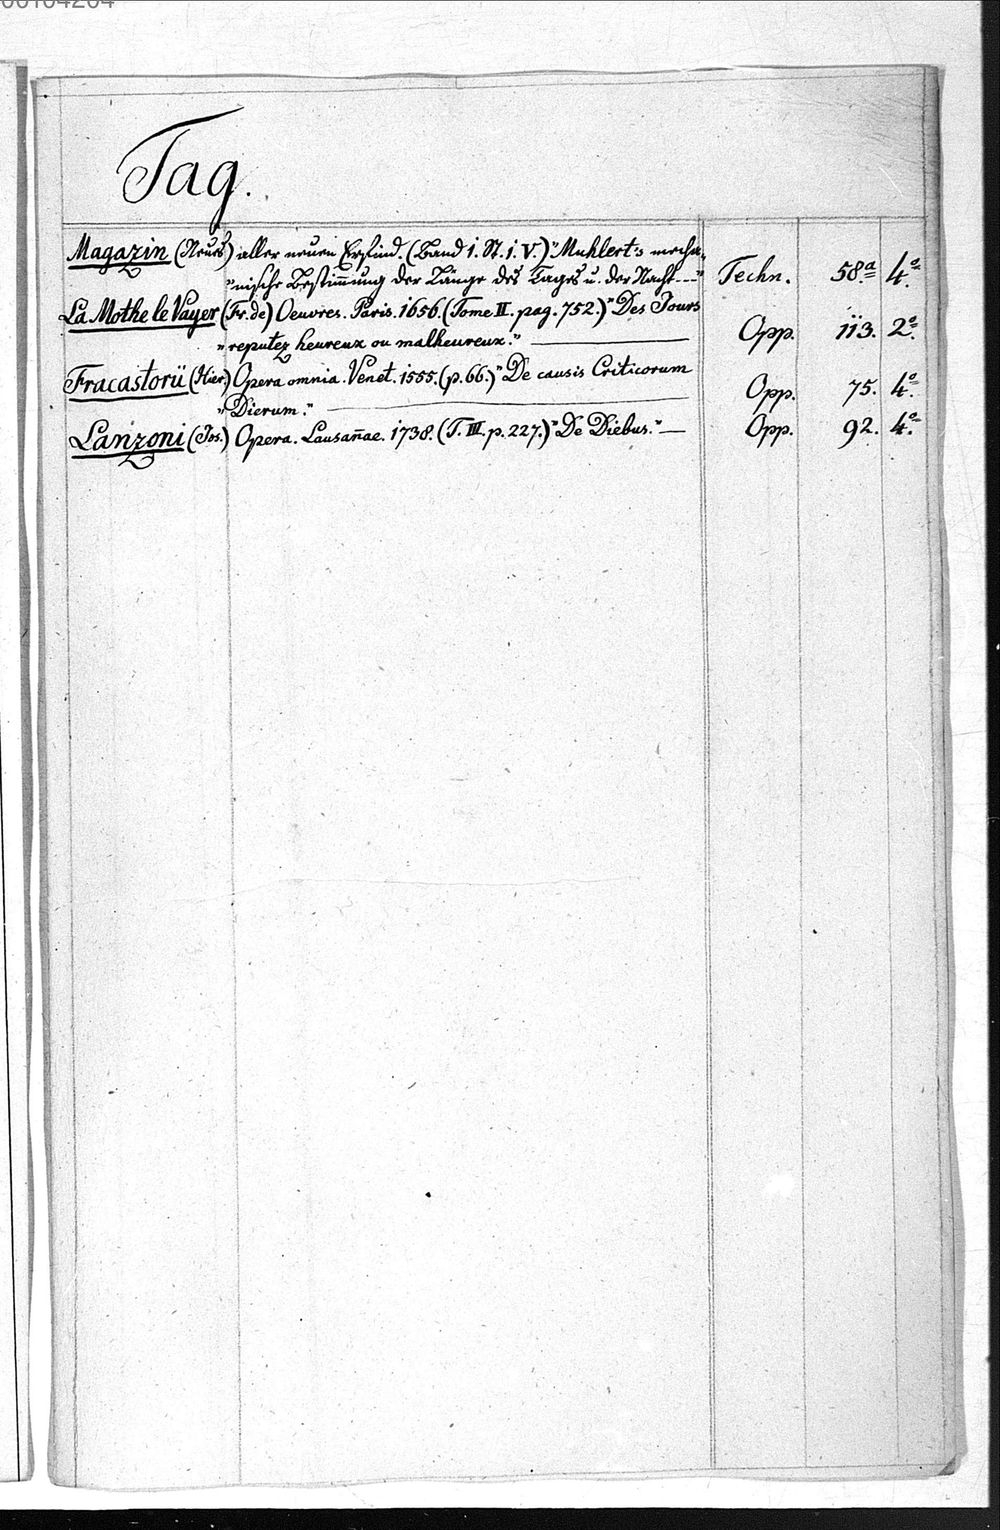 Tag.
Magazin (Neues) aller neuen Erfind. (Band 1. St. 1. V.) "Muhlert's mecha-
"nische Bestimmung der Länge des Tages u. der Nacht---" Techn. 58.a 4.o
La Mothe le Vayer (Fr. de) Oeuvres. Paris. 1656. (Tome II. pag. 752.) "Des Jours
"reputez heureux ou malheureux." Opp. 113. 2.o
Fracastorii (Hier.) Opera omnia. Venet. 1555. (p. 66.) "De causis Criticorum
"Dierum." Opp. 75. 4.o
Lanzoni (Jos.) Opera. Lausan̄ae. 1738. (T. III. p. 227.) "De Diebus." Opp. 92. 4.o